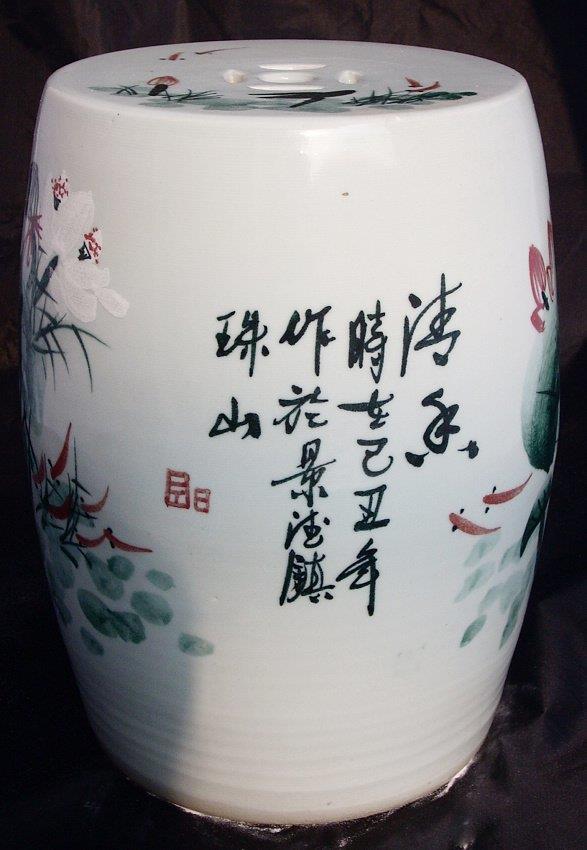 清香
時在己丑年
作於景德鎮
珠山